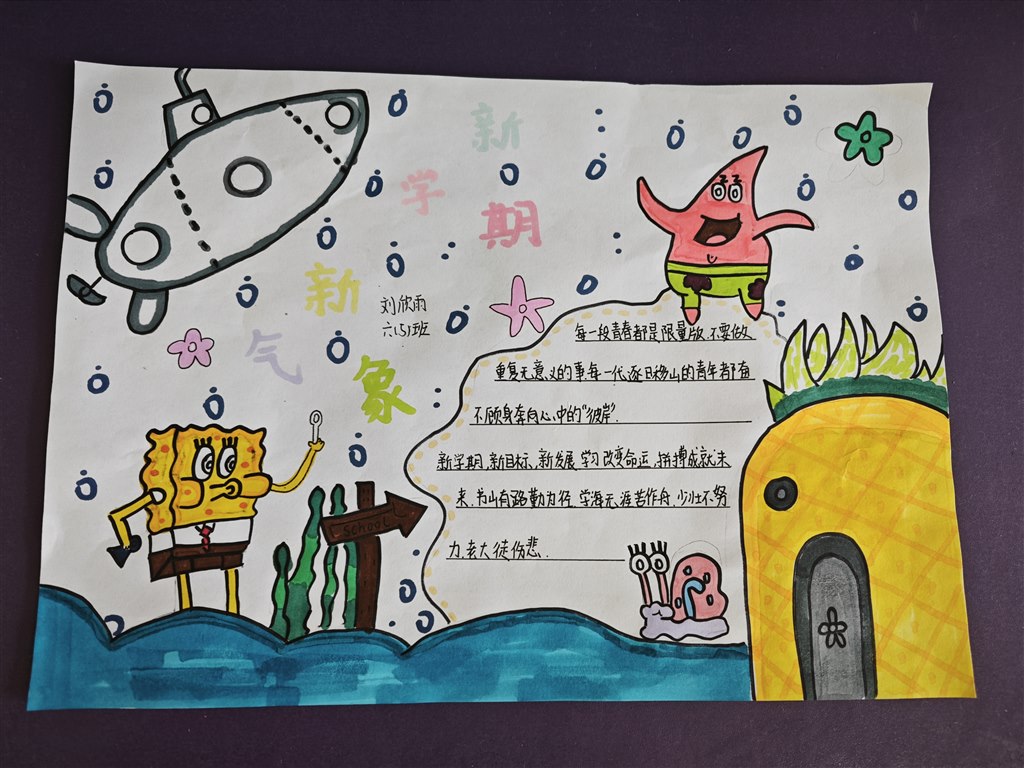 新
学
期
新
气
象
刘欣雨
六(5)班
每一段青春都是限量版.不要做
重复无意义的事.每一代逐日移山的青年都有
不顾身奔向心中的“彼岸”.
新学期,新目标、新发展.学习改变命运,拼搏成就未
来.书山有路勤为径.学海无涯苦作舟.少壮不努
力,老大徒伤悲.
school